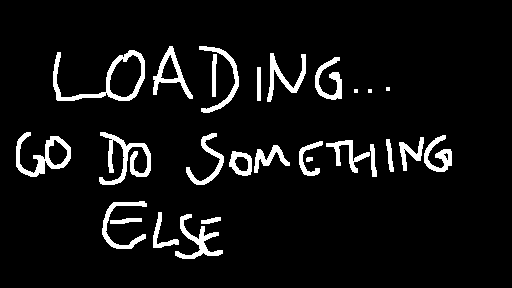 LOADING...
GO DO SOMETHING
ELSE